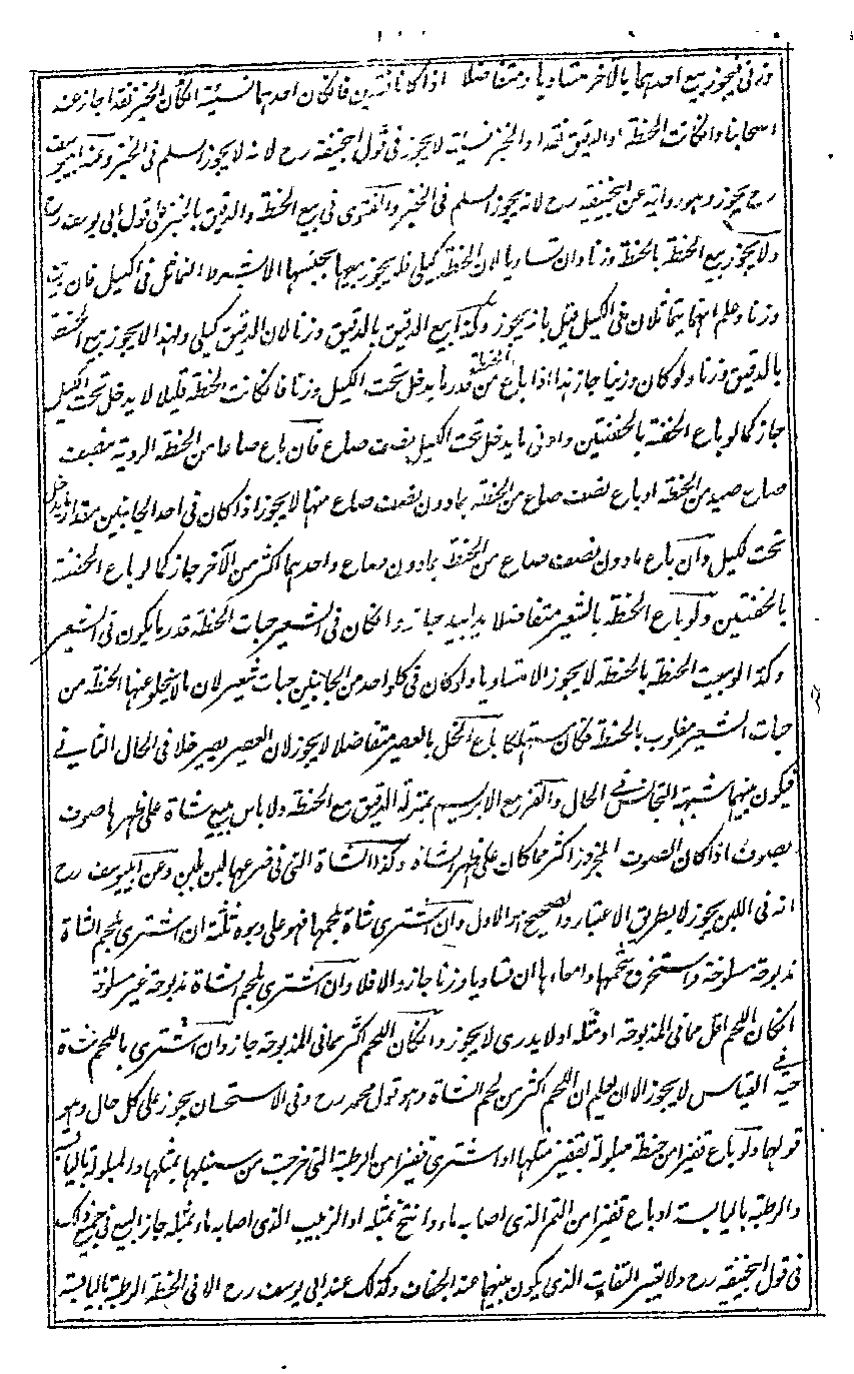 وزنى فيجوز بيع احدهما بالآخر متساويا ومتفاضلا اذا كانا نقدين فان كان احدهما نسيئة ان كان الخبز نقدا جاز عند
اصحابنا وان كانت الحنطة او الدقيق نقدا والخبز نسيئة لا يجوز فى قول ابيحنيفة رح لانه لا يجوز السلم فى الخبز وعند ابييوسف
رح يجوز وهو رواية عن ابيحنيفه رح لانه يجوز السلم فى الخبز والفتوى فى بيع الحنطة والدقيق بالخبز على قول ابى يوسف رح
ولا يجوز بيع الحنطة بالحنطة وزنا وان تساويا لان الحنطة كيلى فلا يجوز بيعها بجنسها الا بشرط التماثل فى الكيل فان بيعت
وزنا وعلم انهما يتماثلان فى الكيل قيل بانه يجوز وكذا بيع الدقيق بالدقيق وزنا لان الدقيق كيلى ولهذا لا يجوز بيع الحنطة
بالدقيق وزنا ولو كان وزنيا جاز هذا اذا باع من الحنطة قدر ما يدخل تحت الكيل وزنا فان كانت الحنطة قليلا لا يدخل تحت الكيل
جاز كما لو باع الحفنة بالحفنتين وادنى ما يدخل تحت الكيل نصف صاع فان باع صاعا من الحنطة الردية بنصف
صاع جيد من الحنطة او باع نصف صاع من الحنطة بمادون نصف صاع منها لا يجوز اذا كان فى احد الجانبين مقدار يدخل
تحت الكيل وان باع مادون نصف صاع من الحنطة بمادون صاع واحدهما اكثر من الآخر جاز كما لو باع الحفنة
بالحفنتين ولو باع الحنطة بالشعير متفاضلا يدا بيد جاز وان كان فى الشعير حبات الحنطة قدر ما يكون فى الشعير
وكذا لو بيعت الحنطة بالحنطة لا يجوز الا متساويا ولو كان فى كل واحد من الجانبين حبات شعير لان ما لا يخلو عنها الحنطة من
حبات الشعير مغلوب بالحنطة فكان مستهلكا باع الخل بالعصير متفاضلا لا يجوز لان العصير يصير خلا فى الحال الثانى
فيكون بينهما شبهة التجانس فى الحال والقز مع الابريسم بمنزلة الدقيق مع الحنطة ولا باس ببيع شاة على ظهرها صوف
بصوف اذا كان الصوف المجزوز اكثر مما كان على ظهر الشاة وكذا الشاة التى فى ضرعها لبن بلبن وعن ابييوسف رح
انه فى اللبن يجوز لا بطريق الاعتبار والصحيح هو الاول وان اشترى شاة بلحمها فهو على وجوه ثلثة ان اشترى بلحم الشاة
مذبوحة مسلوخة واستخرج شحمها وامعاءها ان تساويا وزنا جاز والا فلا وان اشترى بلحم الشاة مذبوحة غير مسلوخة
ان كان اللحم اقل مما فى المذبوحة او مثله او لا يدرى لا يجوز وان كان اللحم اكثر مما فى المذبوحة جاز وان اشترى باللحم شاة
حية فى القياس لا يجوز الا ان يعلم ان اللحم اكثر من لحم الشاة وهو قول محمد رح وفى الاستحسان يجوز على كل حال وهو
قولهما ولو باع قفيزا من حنطة مبلولة بقفيز مثلها او اشترى قفيزا من الرطبة التى خرجت من سنبلها بمثلها والمبلولة باليابسة
والرطبة باليابسة او باع قفيزا من التمر الذى اصابه ماء وانتفخ بمثله او الزبيب الذى اصابه ماء بمثله جاز البيع فى جميع ذلك
فى قول ابيحنيفة رح ولا يعتبر التفاوت الذى يكون بينهما عند الجفاف وكذلك عند ابى يوسف رح الا فى الحنطة الرطبة باليابسة